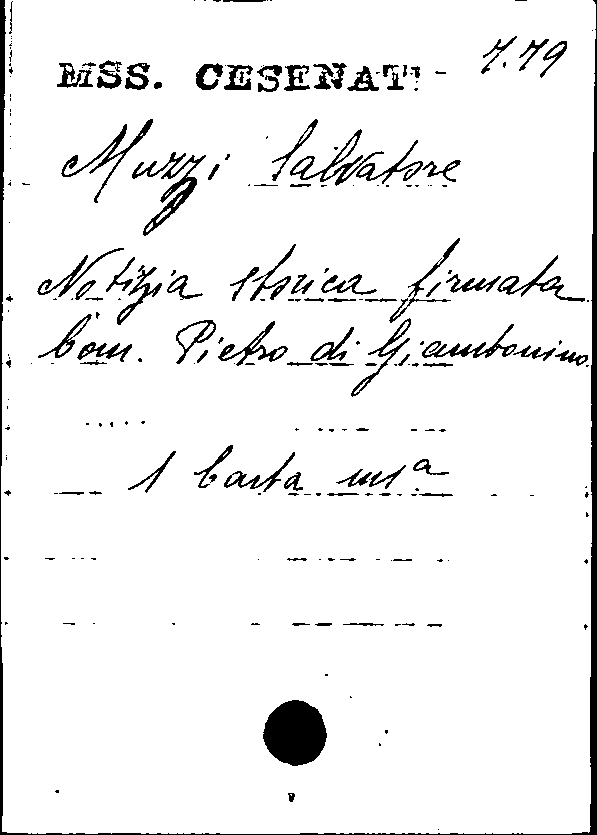 MSS. CESENATI - 7.79
Muzzi Salvatore
Notizia storica firmata
Com. Pietro di Giambonino
1 Carta msª